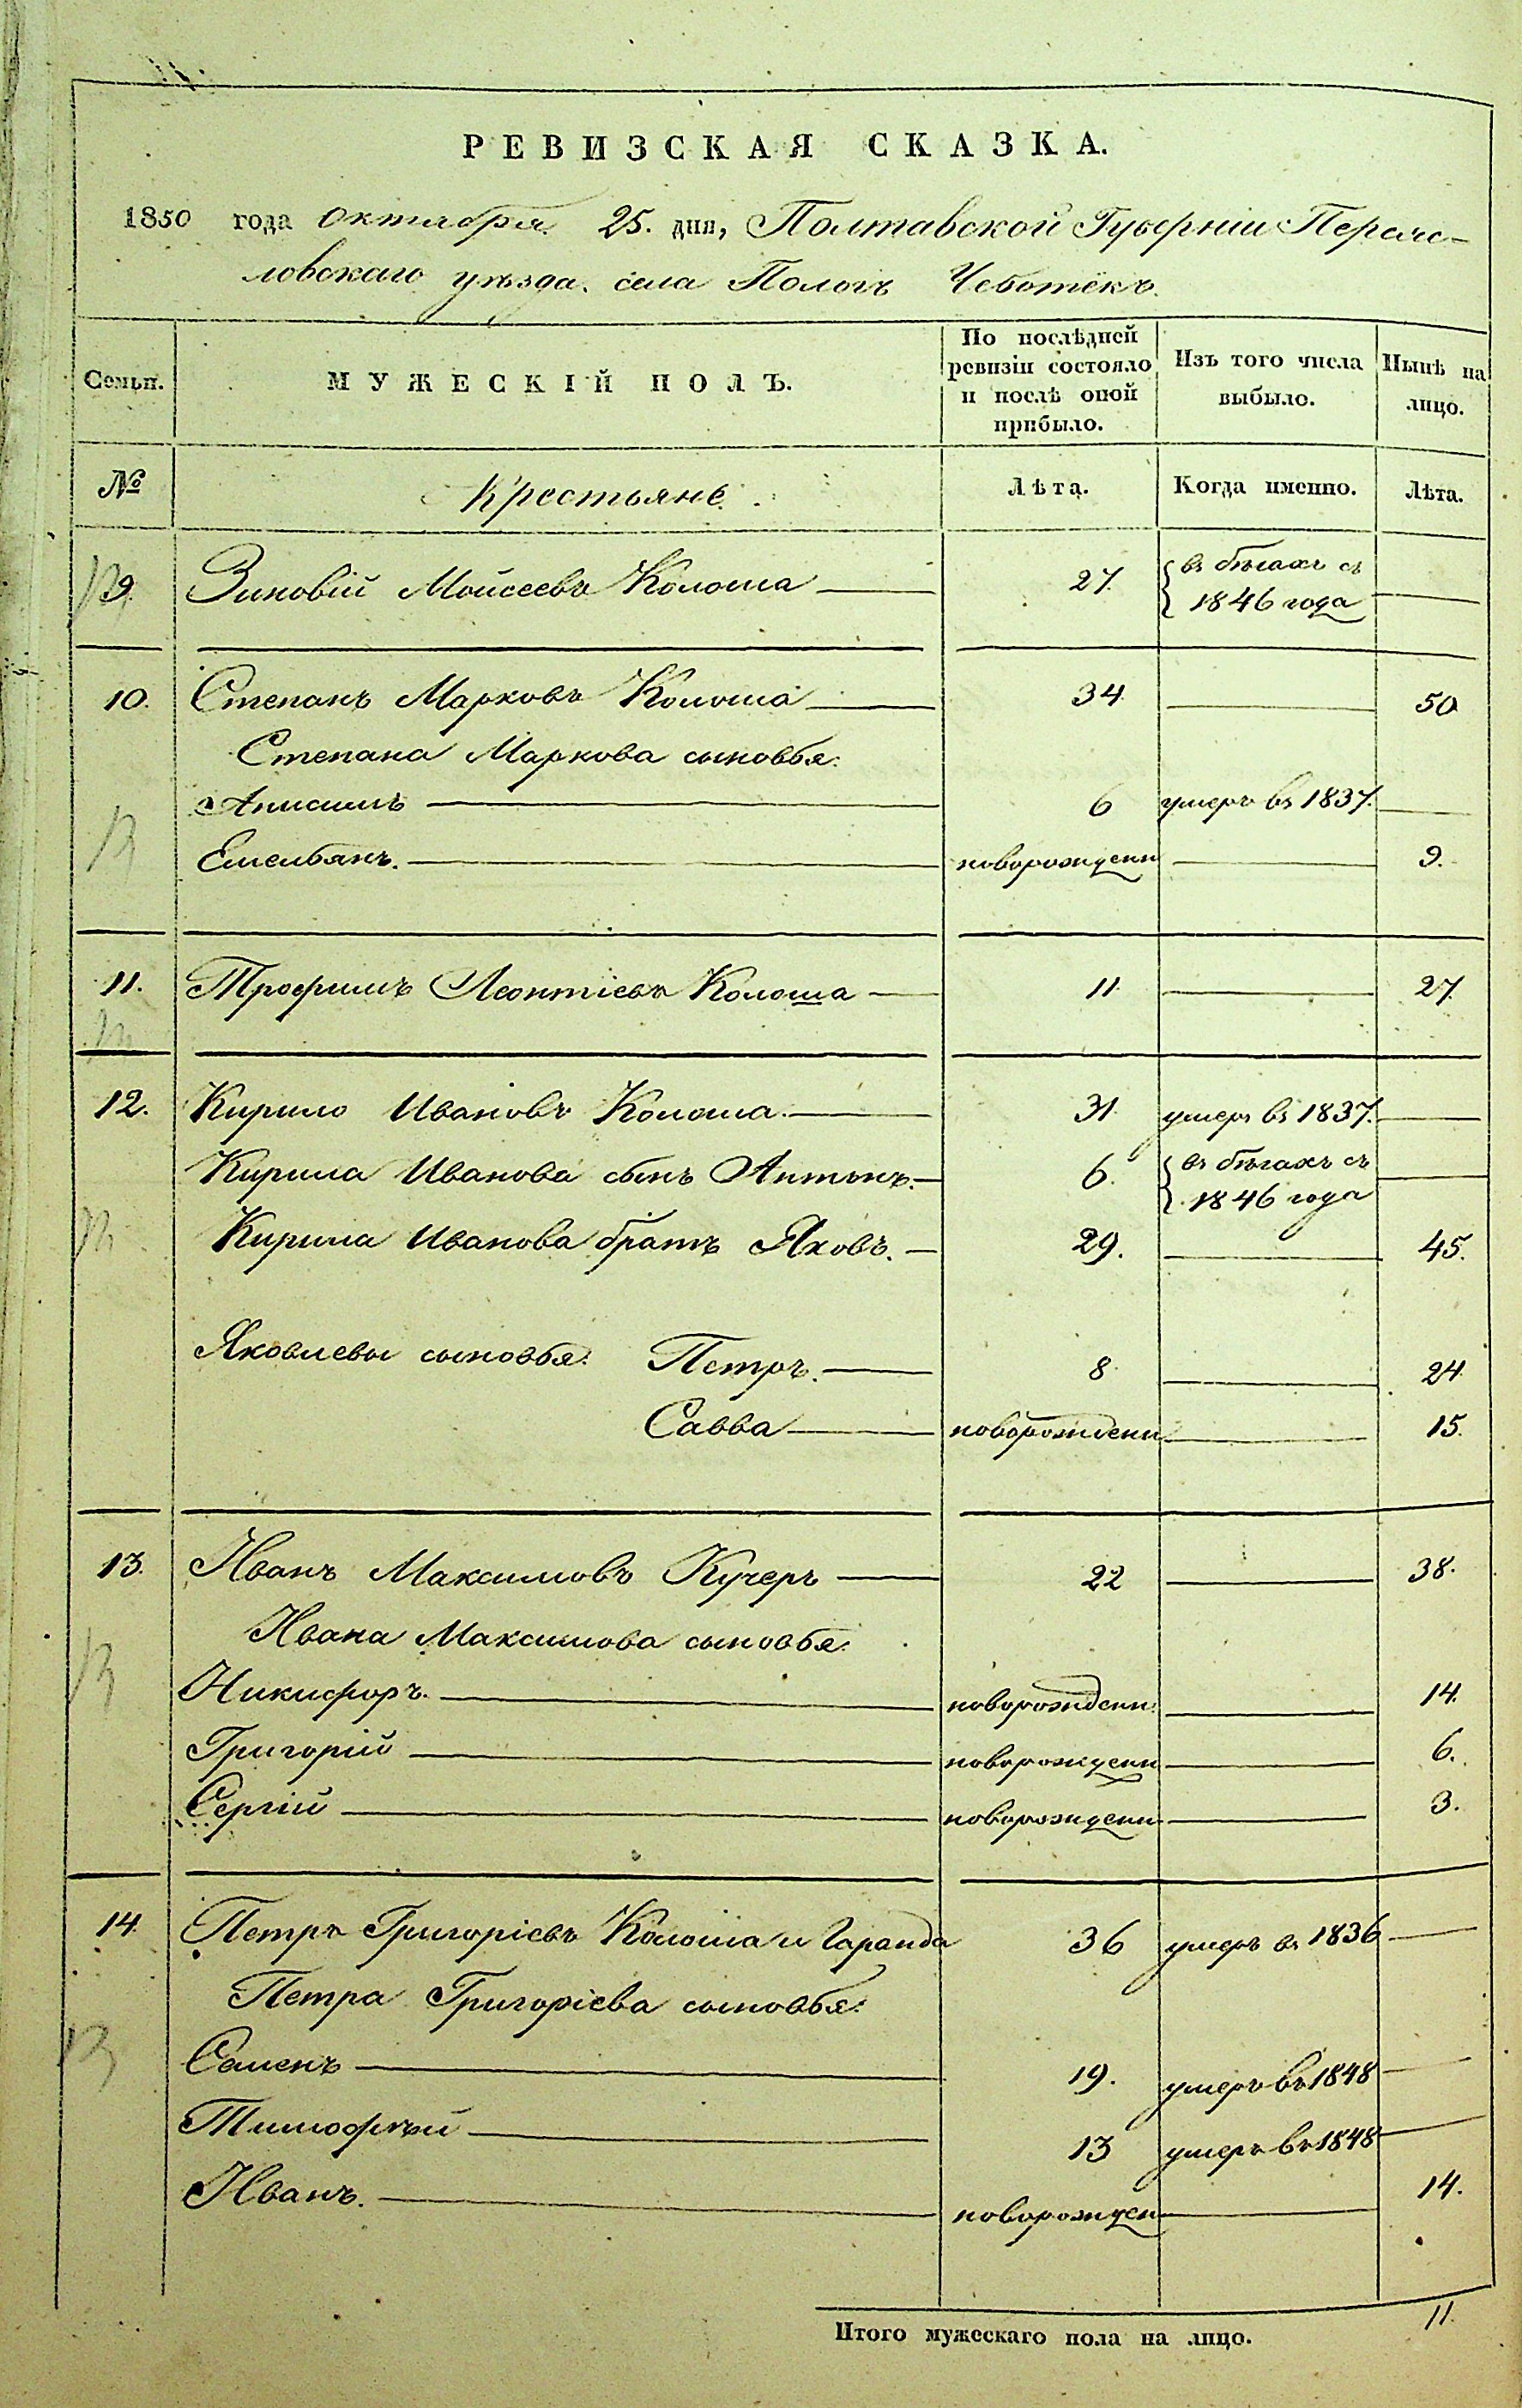 РЕВИЗСКАЯ СКАЗКА.
1850 года Октября 25. дня, Полтавской Губерніи Переяс-
ловскаго уѣзда. села Пологъ Чеботёкъ.
Семьи. МУЖЕСКІЙ ПОЛЪ. По послѣдней ревизіи состояло и послѣ оной прибыло. Изъ того числа выбыло. Нынѣ на лицо.
№ Крестьяне. Лѣта. Когда именно. Лѣта.
9. Зиновій Мойсеевъ Колоша 27. въ бѣгахъ съ 1846 года
10. Степанъ Марковъ Колоша 34. 50
Степана Маркова сыновья:
Анисимъ 6 умеръ въ 1837.
Емельянъ. новорожденн 9.
11. Трофимъ Леонтіевъ Колоша 11. 27.
12. Кирило Ивановъ Колоша. 31. умеръ въ 1837.
Кирила Иванова сынъ Антонъ. 6. въ бѣгахъ съ 1846 года
Кирила Иванова братъ Яковъ. 29. 45.
Яковлевы сыновья: Петръ. 8. 24.
Савва новорожденн 15.
13. Иванъ Максимовъ Кучеръ 22 38.
Ивана Максимова сыновья:
Никифоръ. новорожденн. 14.
Григорій новорожденн 6.
Сергій новорожденн. 3.
14. Петръ Григорієвъ Колоша и Гаранда 36 умеръ въ 1836
Петра Григорієва сыновья:
Семенъ 19. умеръ въ 1848
Тимофѣй 13 умеръ въ 1848
Иванъ. новорожден 14.
Итого мужескаго пола на лицо. 11.